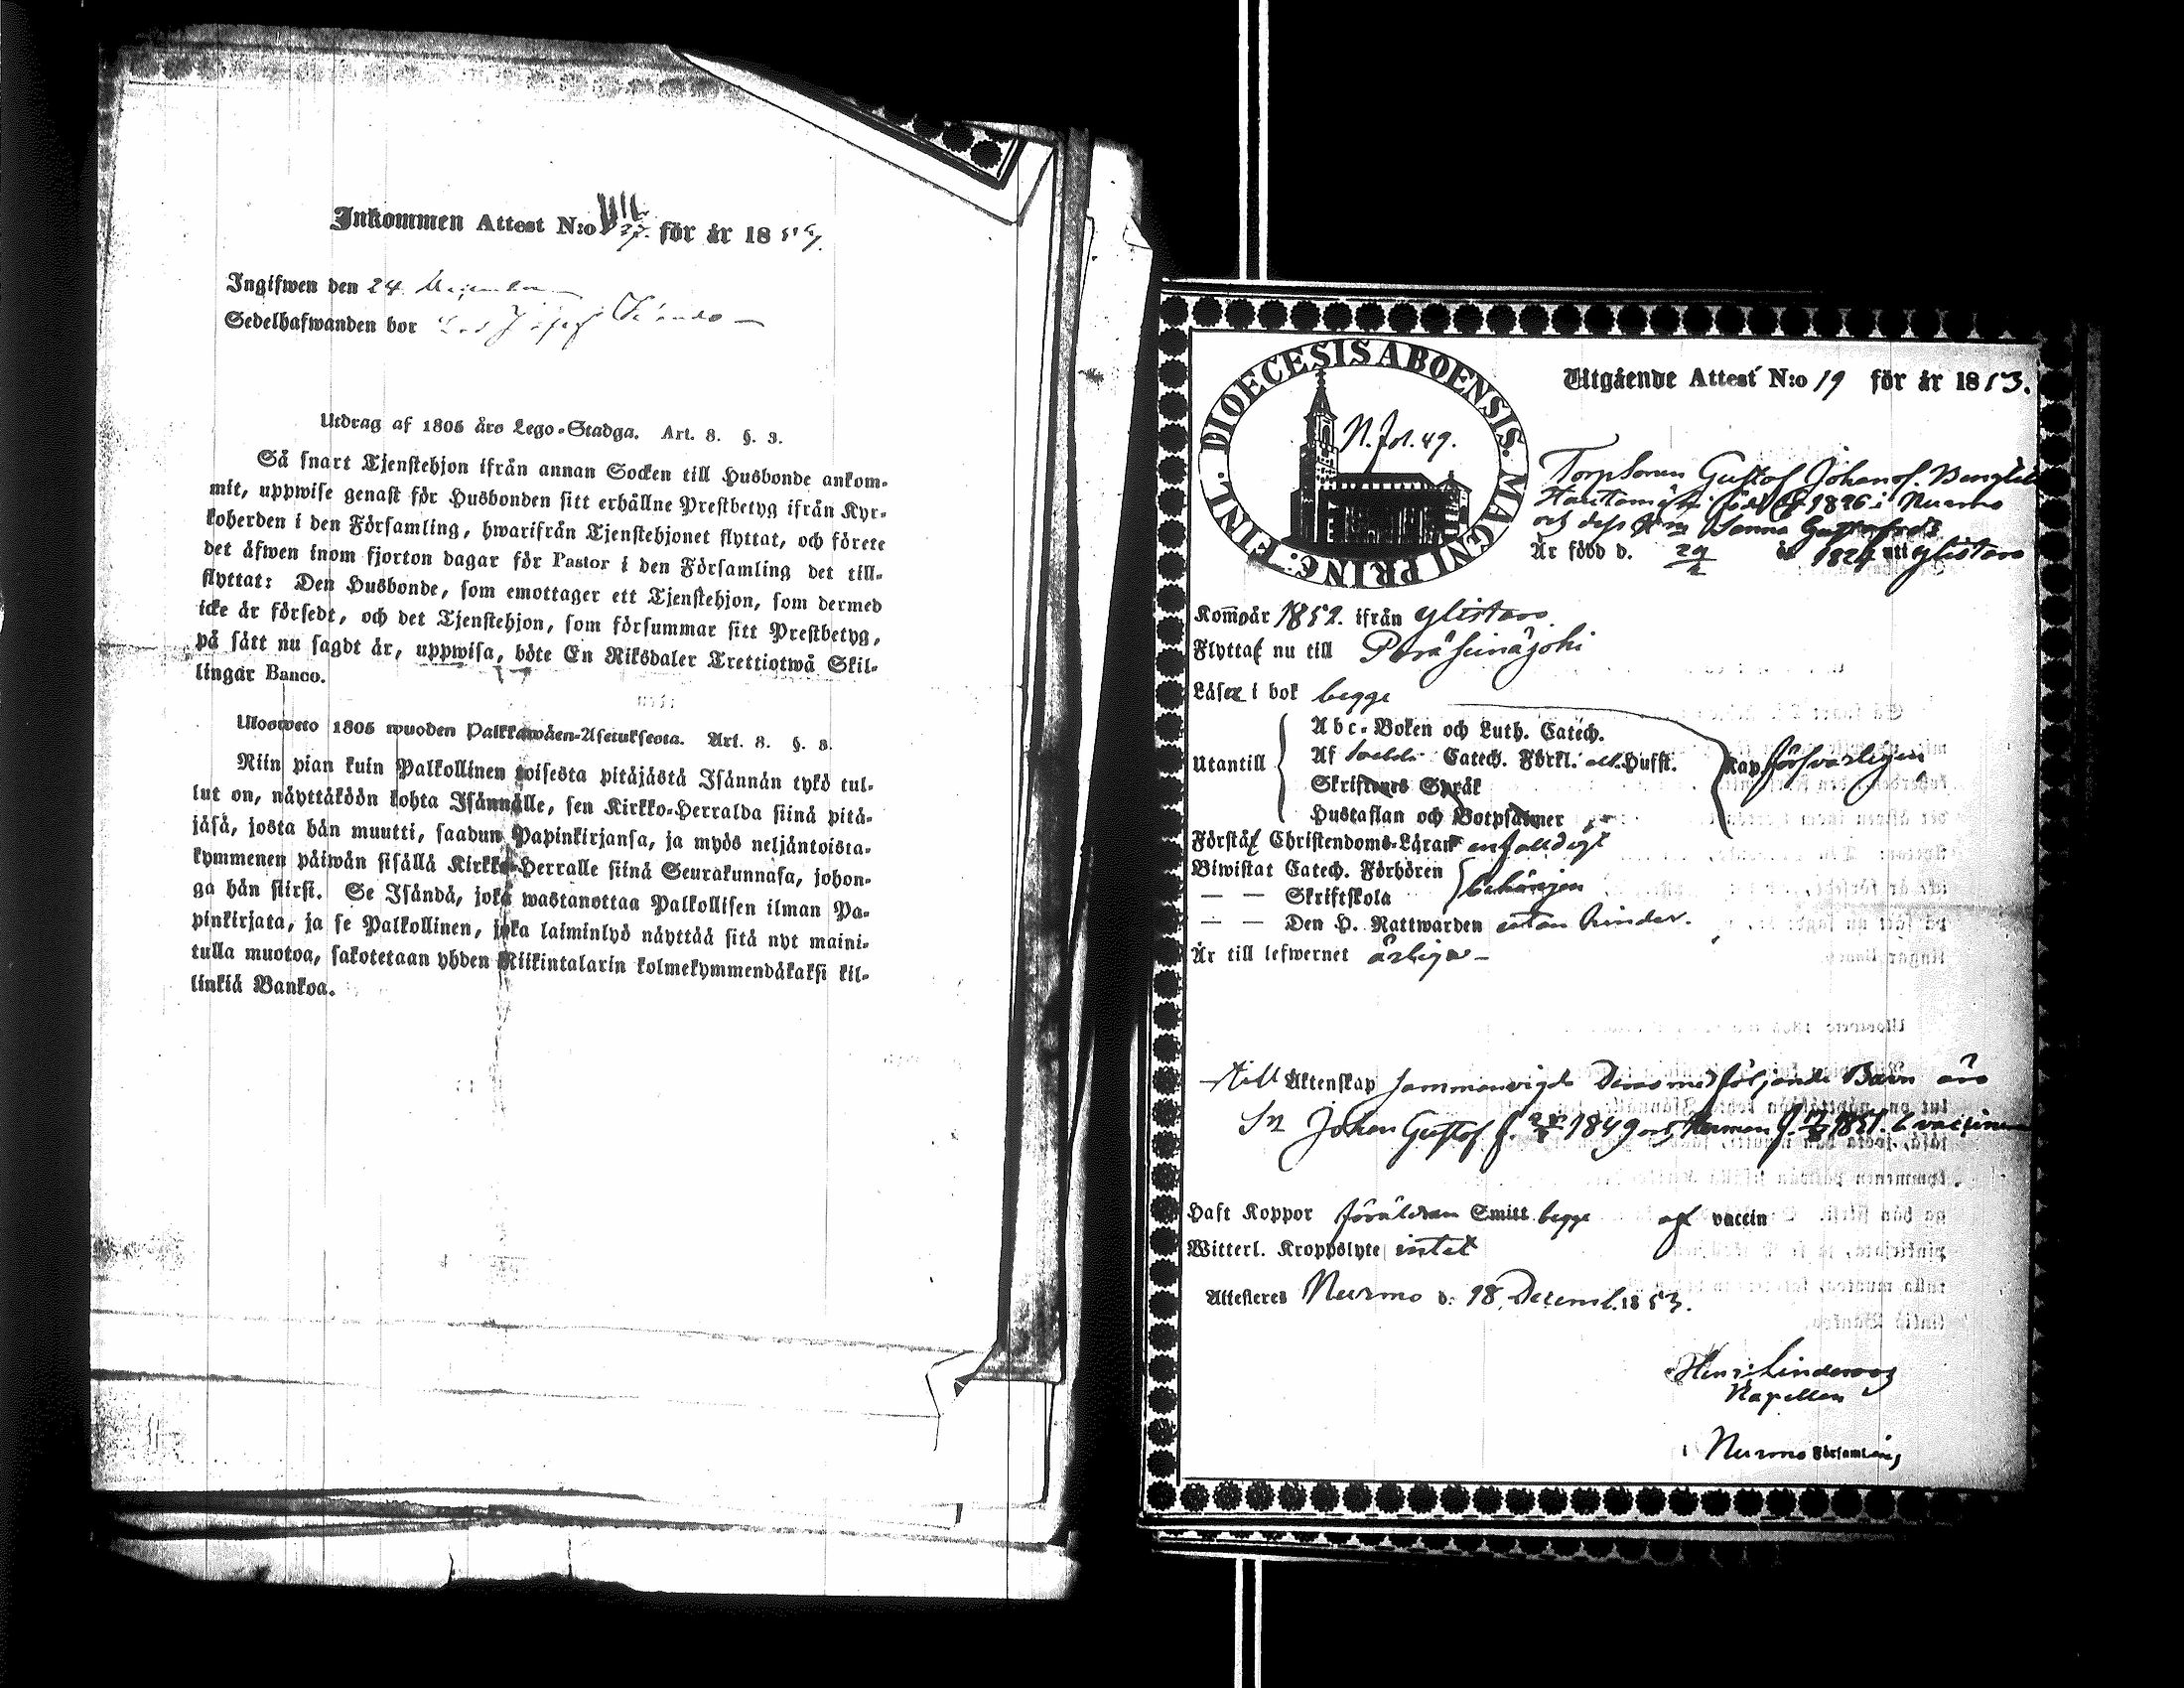 Inkommen Attest N:o för år 18
Ingifwen den 24
Sedelhafwanden bor
Utdrag af 1805 års Lego-Stadga. Art. 8. §. 3.
Så snart Tjenstehjon ifrån annan Socken till Husbonde ankom-
mit, uppwise genast för Husbonden sitt erhållne Prestbetyg ifrån Kyr-
koherden i den Församling, hwarifrån Tjenstehjonet flyttat, och förete
det äfwen inom fjorton dagar för Pastor i den Församling det till-
flyttat: Den Husbonde, som emottager ett Tjenstehjon, som dermed
icke är försedt, och det Tjenstehjon, som försummar sitt Prestbetyg,
på sätt nu sagdt är, uppwisa, böte En Riksdaler Trettiotwå Skil-
lingar Banco.
Ulosweto 1805 wuoden Palkkawäen-Asetuksesta. Art. 8. §. 3.
Niin pian kuin Palkollinen toisesta pitäjästä Isännän tykö tul-
lut on, näyttäköön kohta Isännälle, sen Kirkko-Herralda siinä pitä-
jäsä, josta hän muutti, saadun Papinkirjansa, ja myös neljäntoista-
kymmenen päiwän sisällä Kirkko-Herralle siinä Seurakunnasa, johon-
ga hän siirsi. Se Isändä, joka wastanottaa Palkollisen ilman Pa-
pinkirjata, ja se Palkollinen, joka laiminlyö näyttää sitä nyt maini-
tulla muotoa, sakotetaan yhden Riikintalarin kolmekymmendäkaksi kil-
linkiä Bankoa.
DIOECESIS ABOENSIS. MAGNI PRINC: FINL.
N. fol. 49.
Utgående Attest N:o 19 för år 1853.
Torpsonen Gustof Johansf.
född 1826 i Nurmo
och dess Sanna
Är född d. 29 år 1824 uti Ylistaro
Kom̄o år 1852. ifrån Ylistaro.
Flyttat nu till Peräseinäjoki
Läser i bok begge
Utantill Abc-Boken och Luth. Catech.
Af Catech. Förkl. Hufst.
Skriftenes Språk
Hustaflan och Botpsalmer
Kap försvarligen
Förstår Christendoms-Läran enfalldigt
Biwistat Catech. Förhören
— — Skriftskola behörigen
— — Den H. Nattwarden utan hinder.
Är till lefwernet ärliga –
till Äktenskap sammanvigde Deras medföljande Barn äro
Sn Johan Gustof f. 1849 och Herman f. 1851.
Haft Koppor föräldran Smitt begge af vaccin
Witterl. Kroppslyte intet
Attesteres Nurmo d. 18. Decemb. 1853.
Kapellan
i Nurmo Församling